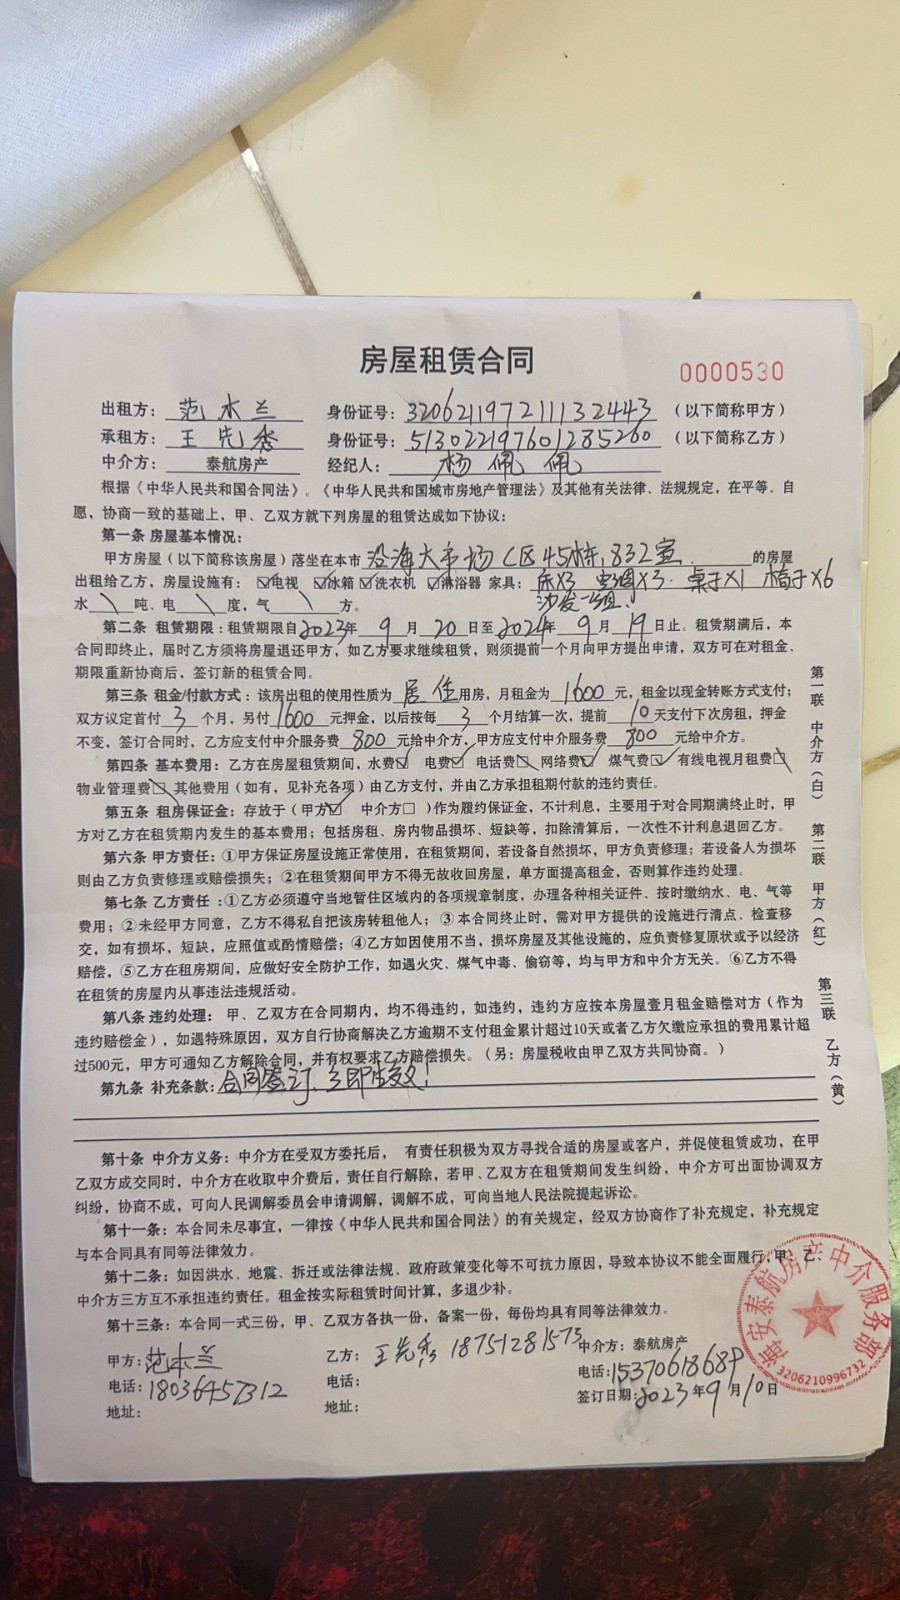 房屋租赁合同
0000530
出租方：范木兰 身份证号：320621197211132443 （以下简称甲方）
承租方：王先秀 身份证号：513022197601285260 （以下简称乙方）
中介方：泰航房产 经纪人：杨佩佩
根据《中华人民共和国合同法》、《中华人民共和国城市房地产管理法》及其他有关法律、法规规定，在平等、自
愿，协商一致的基础上，甲、乙双方就下列房屋的租赁达成如下协议：
第一条 房屋基本情况：
甲方房屋（以下简称该房屋）落坐在本市沿海大市场C区45栋，832室 的房屋
出租给乙方，房屋设施有：☑电视 ☑冰箱 ☑洗衣机 ☑淋浴器 家具：床X3 空调X3 桌子X1 椅子X6
沙发一组！
水\吨、电\度，气\方。
第二条 租赁期限：租赁期限自2023年9月20日至2024年9月19日止。租赁期满后，本
合同即终止，届时乙方须将房屋退还甲方，如乙方要求继续租赁，则须提前一个月向甲方提出申请，双方可在对租金、
期限重新协商后，签订新的租赁合同。
第三条 租金/付款方式：该房出租的使用性质为居住用房，月租金为1600元，租金以现金转账方式支付；
双方议定首付3个月，另付1600元押金，以后按每3个月结算一次，提前10天支付下次房租，押金
不变，签订合同时，乙方应支付中介服务费800元给中介方，甲方应支付中介服务费800元给中介方。
第四条 基本费用：乙方在房屋租赁期间，水费☑ 电费☑ 电话费□ 网络费☑ 煤气费☑ 有线电视月租费□
物业管理费□ 其他费用（如有，见补充各项）由乙方支付，并由乙方承担租期付款的违约责任。
第五条 租房保证金：存放于（甲方☑ 中介方□ ）作为履约保证金，不计利息，主要用于对合同期满终止时，甲
方对乙方在租赁期内发生的基本费用；包括房租、房内物品损坏、短缺等，扣除清算后，一次性不计利息退回乙方。
第六条 甲方责任：①甲方保证房屋设施正常使用，在租赁期间，若设备自然损坏，甲方负责修理；若设备人为损坏
则由乙方负责修理或赔偿损失；②在租赁期间甲方不得无故收回房屋，单方面提高租金，否则算作违约处理。
第七条 乙方责任：①乙方必须遵守当地暂住区域内的各项规章制度，办理各种相关证件、按时缴纳水、电、气等
费用；②未经甲方同意，乙方不得私自把该房转租他人；③本合同终止时，需对甲方提供的设施进行清点、检查移
交，如有损坏，短缺，应照值或酌情赔偿；④乙方如因使用不当，损坏房屋及其他设施的，应负责修复原状或予以经济
赔偿，⑤乙方在租房期间，应做好安全防护工作，如遇火灾、煤气中毒、偷窃等，均与甲方和中介方无关。⑥乙方不得
在租赁的房屋内从事违法违规活动。
第八条 违约处理：甲、乙双方在合同期内，均不得违约，如违约，违约方应按本房屋壹月租金赔偿对方（作为
违约赔偿金），如遇特殊原因，双方自行协商解决乙方逾期不支付租金累计超过10天或者乙方欠缴应承担的费用累计超
过500元，甲方可通知乙方解除合同，并有权要求乙方赔偿损失。（另：房屋税收由甲乙双方共同协商。）
第九条 补充条款：合同签订、立即生效！
第十条 中介方义务：中介方在受双方委托后，有责任积极为双方寻找合适的房屋或客户，并促使租赁成功，在甲
乙双方成交同时，中介方在收取中介费后，责任自行解除，若甲、乙双方在租赁期间发生纠纷，中介方可出面协调双方
纠纷，协商不成，可向人民调解委员会申请调解，调解不成，可向当地人民法院提起诉讼。
第十一条：本合同未尽事宜，一律按《中华人民共和国合同法》的有关规定，经双方协商作了补充规定，补充规定
与本合同具有同等法律效力。
第十二条：如因洪水、地震、拆迁或法律法规、政府政策变化等不可抗力原因，导致本协议不能全面履行，甲、乙、
中介方三方互不承担违约责任。租金按实际租赁时间计算，多退少补。
第十三条：本合同一式三份，甲、乙双方各执一份，备案一份，每份均具有同等法律效力。
甲方：范木兰 乙方：王先秀 18751281573 中介方：泰航房产
电话：18036457312 电话： 电话：15370618689
地址： 地址： 签订日期：2023年9月10日
第一联 中介方（白） 第二联 甲方（红） 第三联 乙方（黄）
海安泰航房产中介服务部
3206210996732